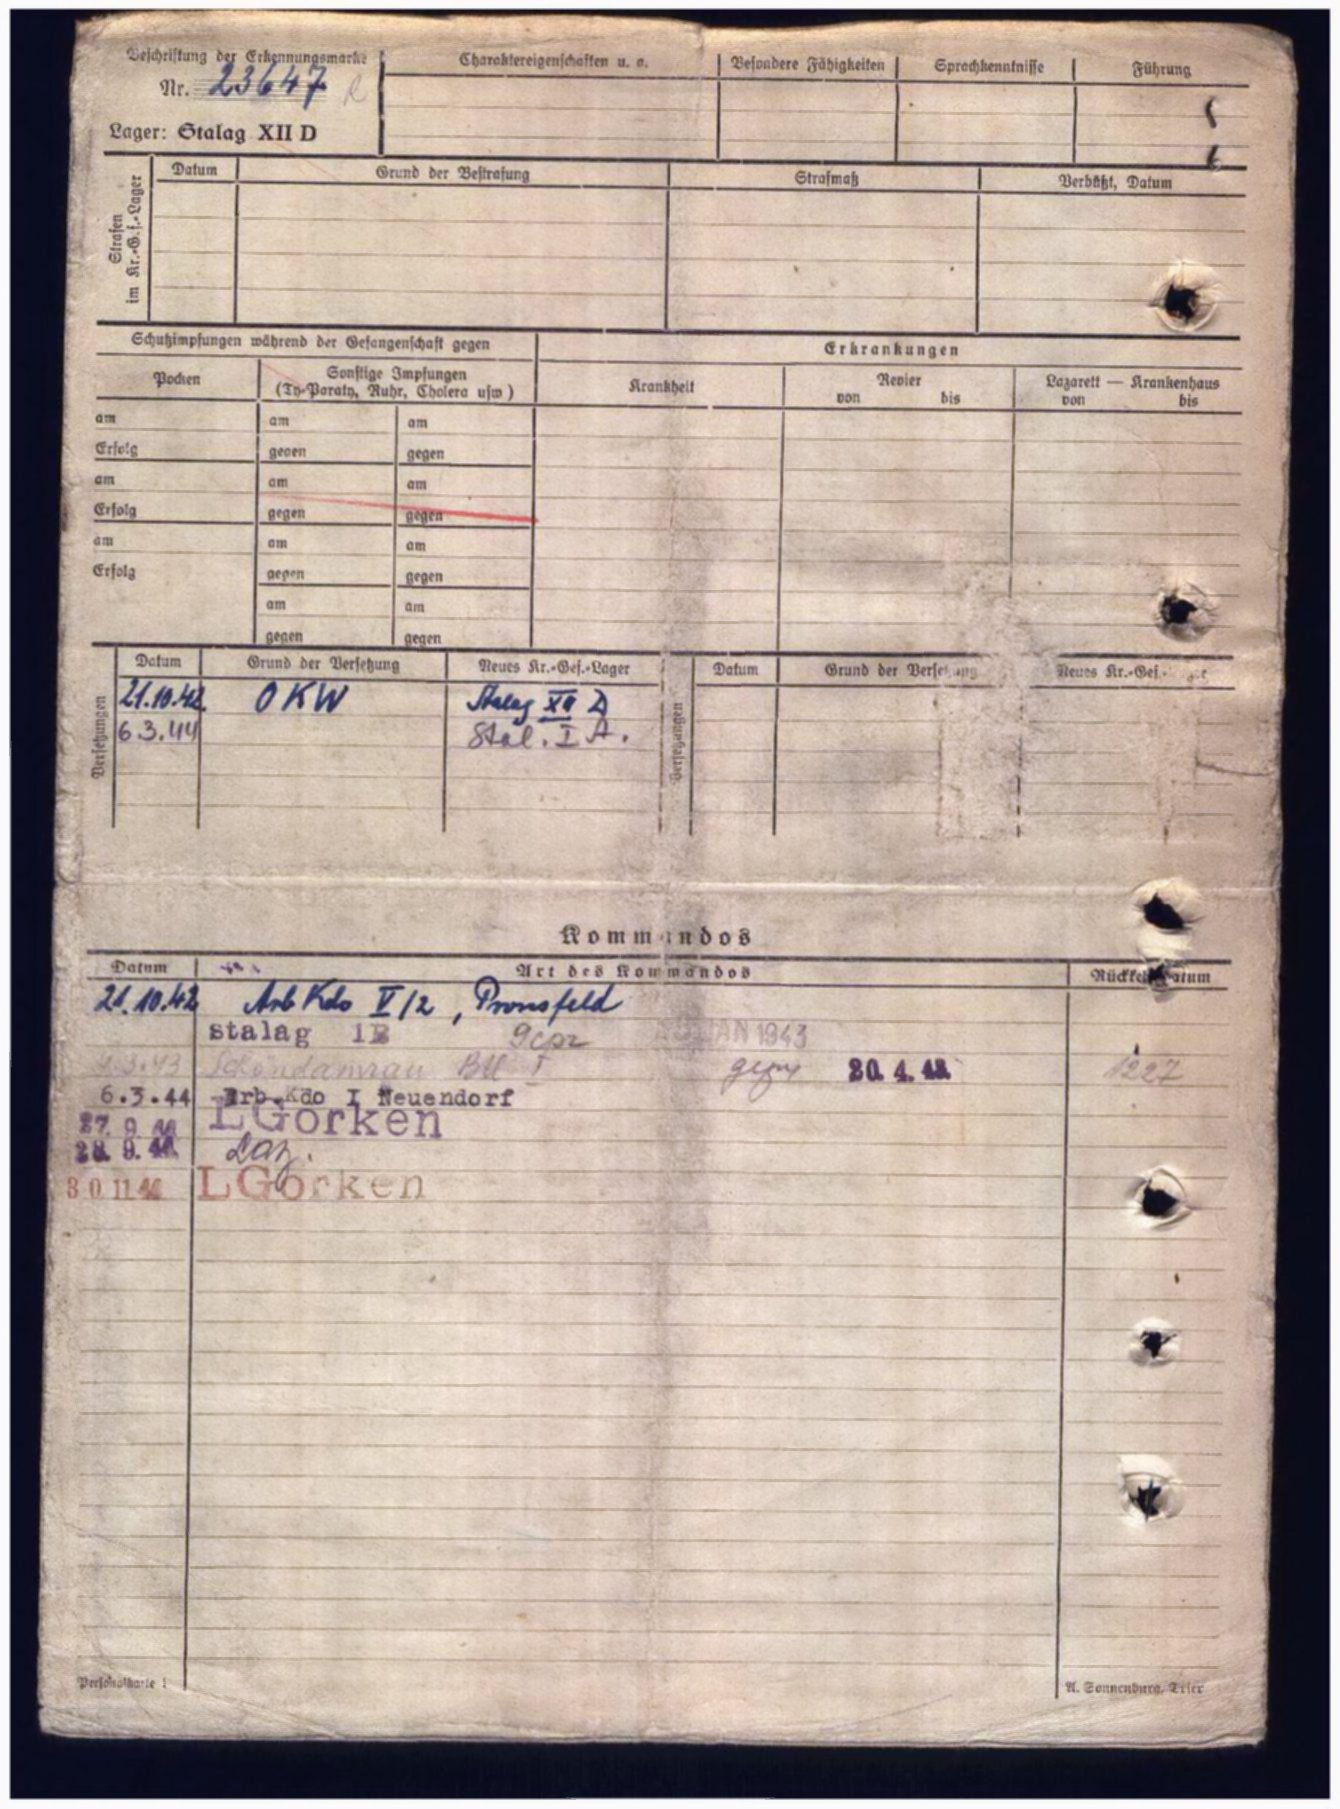 Beschriftung der Erkennungsmarke
Nr. 23647
Lager: Stalag XII D
Charaktereigenschaften u. a.
Besondere Fähigkeiten
Sprachkenntnisse
Führung
Strafen im Kr.-G.f.-Lager
Datum
Grund der Bestrafung
Strafmaß
Verbüßt, Datum
Schutzimpfungen während der Gefangenschaft gegen
Erkrankungen
Pocken
Sonstige Impfungen
(Ty-Paraty, Ruhr, Cholera usw)
Krankheit
Revier
von bis
Lazarett — Krankenhaus
von bis
am am am
Erfolg gegen gegen
am am am
Erfolg gegen gegen
am am am
Erfolg gegen gegen
am am
gegen gegen
Versetzungen
Datum Grund der Versetzung Neues Kr.-Gef.-Lager
21.10.42 OKW Stalag XII D
6.3.44 Stal. I A.
Versetzungen
Datum Grund der Versetzung Neues Kr.-Gef.-
Kommandos
Datum Art des Kommandos Rückkehr Datum
21.10.42 Arb Kdo V/2, Pronsfeld
stalag 1B gepr JAN 1943
3.43 Schöndamrau Btl I 1227
6.3.44 Arb.Kdo I Neuendorf
27. 9. 44 LGörken
28. 9. 44 Laz.
30 11 44 LGörken
Personalkarte I
A. Sonnenburg, Trier